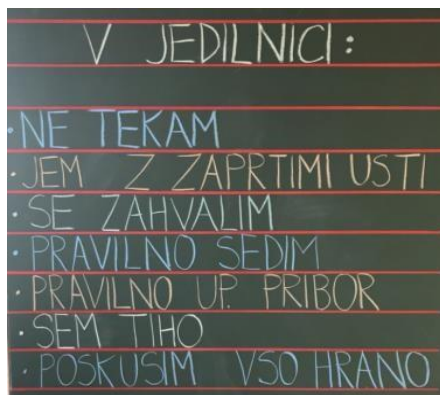 V JEDILNICI:
·NE TEKAM
·JEM Z ZAPRTIMI USTI
·SE ZAHVALIM
·PRAVILNO SEDIM
·PRAVILNO UP. PRIBOR
·SEM TIHO
·POSKUSIM VSO HRANO